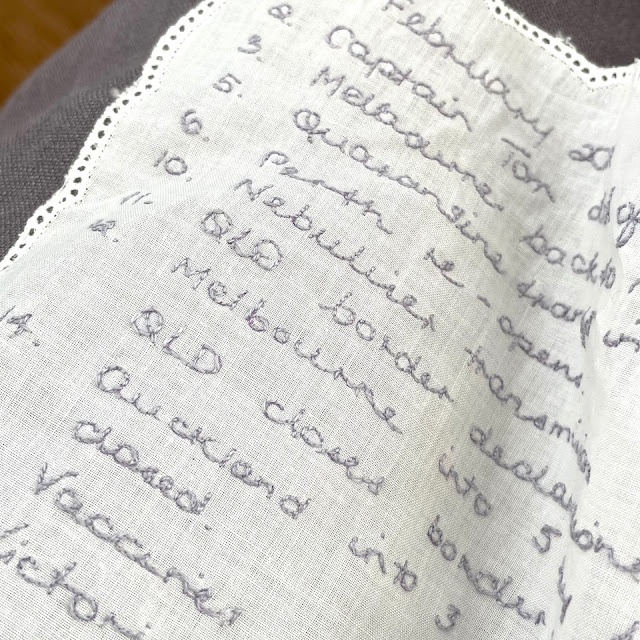 February 20
2. Captain Tom
3. Melbourne. back to
5. Quarantine
6. Perth re-opens.
10. Nebuliser
11. QLD border
12. Melbourne into 5
QLD closes border
14. Auckland into 3
closed.
Vaccines